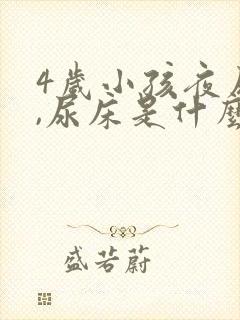 4歲小孩夜尿
,尿床是什麼
盛若蔚